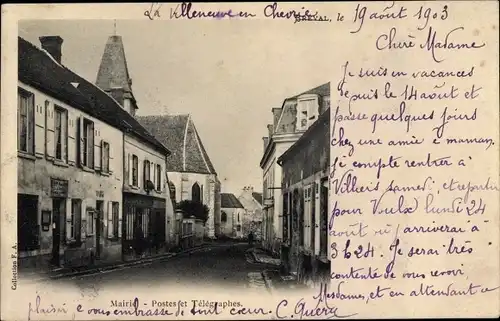 La Villeneuve en Chevrie
BRÉVAL, le 19 août 1903
Chère Madame
Je suis en vacances
depuis le 14 août et
passe quelques jours
chez une amie à maman.
Je compte rentrer à
Villiers samedi, et repartir
pour Voulx lundi 24
J'arriverai à
3h24. Je serai très
contente de vous revoir,
Mesdames, et en attendant ce
plaisir, je vous embrasse de tout cœur.
Mairie - Postes et Télégraphes.
Collection F. A.